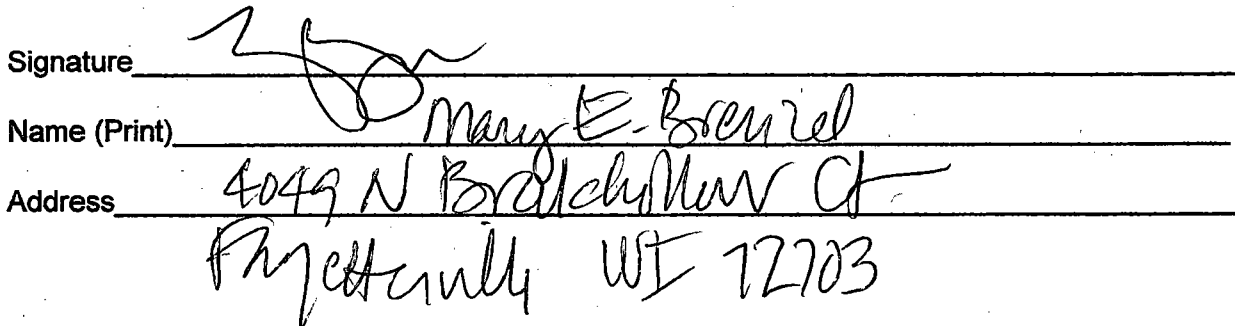 Signature
Name (Print) Mary E. Brenzel
Address 4049 N Ct
Fayetteville WI 72703